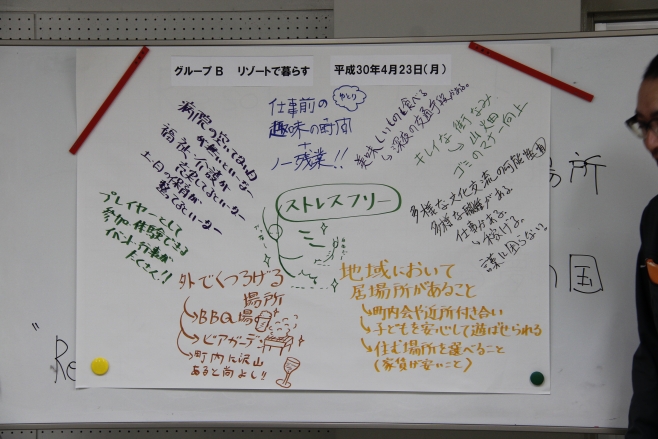 グループB リゾートで暮らす 平成30年4月23日(月)
病院の空いてない日が無いといいなー
福祉、介護が充実してるといいなー
土日の保育が整ってるといいなー
プレイヤーとして
参加・体験できる
イベント・行事が
たくさん!!
仕事前の
ゆとり
趣味の時間
+
ノー残業!!
美味しいものを食べる
↳深夜の交通手段がある。
キレイな街なみ
↳山・畑
ゴミのマナー向上
多様な文化交流の
多様な職種がある
仕事がある
↳稼げる
謀に困らない?
ストレスフリー
外でくつろげる
場所
↳BBQ場
↳ビアガーデン
↳町内に沢山
あると尚よし!!
地域において
居場所があること
↳町内会や近所付き合い
↳子どもを安心して遊ばせられる
↳住む場所を選べること
(家賃が安いこと)
"
Re
場所
の国